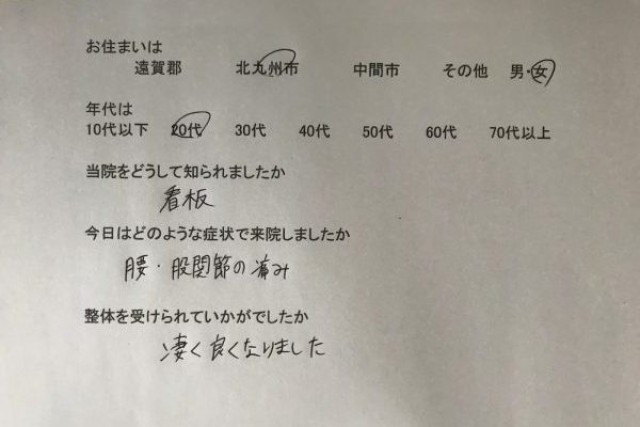 お住まいは
遠賀郡 北九州市 中間市 その他 男・女
年代は
10代以下 20代 30代 40代 50代 60代 70代以上
当院をどうして知られましたか
看板
今日はどのような症状で来院しましたか
腰・股関節の痛み
整体を受けられていかがでしたか
凄く良くなりました